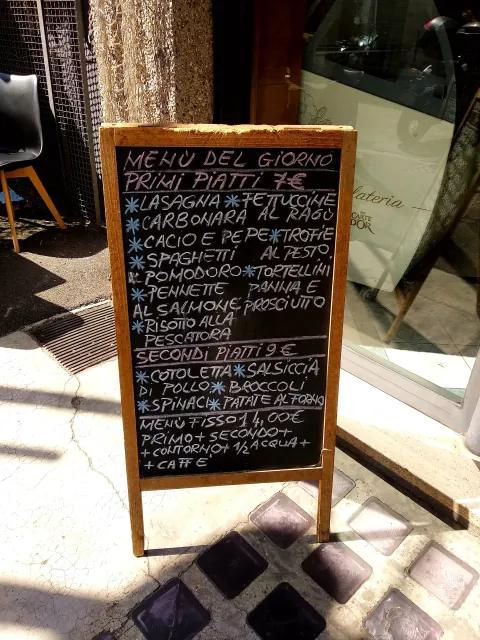 MENU DEL GIORNO
PRIMI PIATTI 7€
*LASAGNA *FETTUCCINE
*CARBONARA AL RAGÙ
*CACIO E PEPE *TROFIE
*SPAGHETTI AL PESTO
POMODORO *TORTELLINI
*PENNETTE PANNA E
AL SALMONE PROSCIUTTO
*RISOTTO ALLA
PESCATORA
SECONDI PIATTI 9€
*COTOLETTA *SALSICCIA
DI POLLO *BROCCOLI
*SPINACI *PATATE AL FORNO
MENÙ FISSO 14,00€
PRIMO+SECONDO+
+CONTORNO+½ACQUA+
+CAFFE
lateria
D'OR